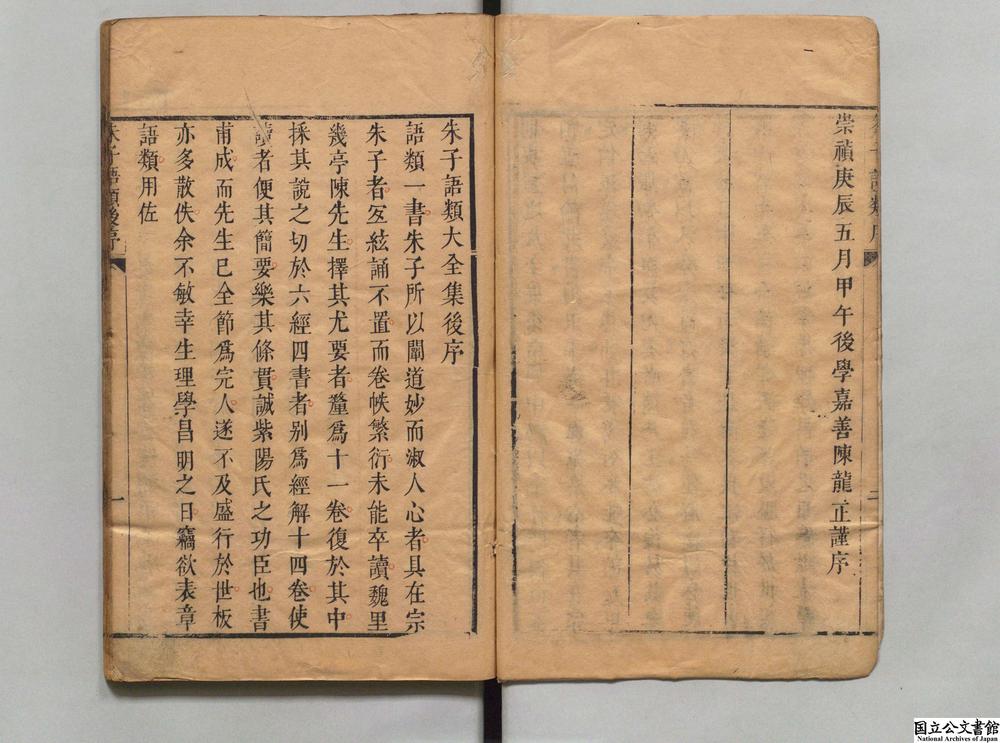 崇禎庚辰五月甲午後學嘉善陳龍正謹序
二
朱子語類大全集後序
語類一書朱子所以闡道妙而淑人心者具在宗
朱子者㞐絃誦不置而卷帙繁衍未能卒讀魏里
幾亭陳先生擇其尤要者釐爲十一卷復於其中
採其說之切於六經四書者别爲經解十四卷使
讀者便其簡要樂其條貫誠紫陽氏之功臣也書
甫成而先生已全節爲完人遂不及盛行於世板
亦多散佚余不敏幸生理學昌明之日竊欲表章
語類用佐
朱子語類後序
一
国立公文書館
National Archives of Japan